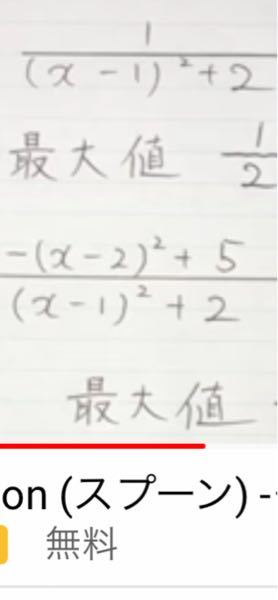 1
(x-1)²+2
最大値 1
2
-(x-2)²+5
(x-1)²+2
最大値
on (スプーン) -
無料